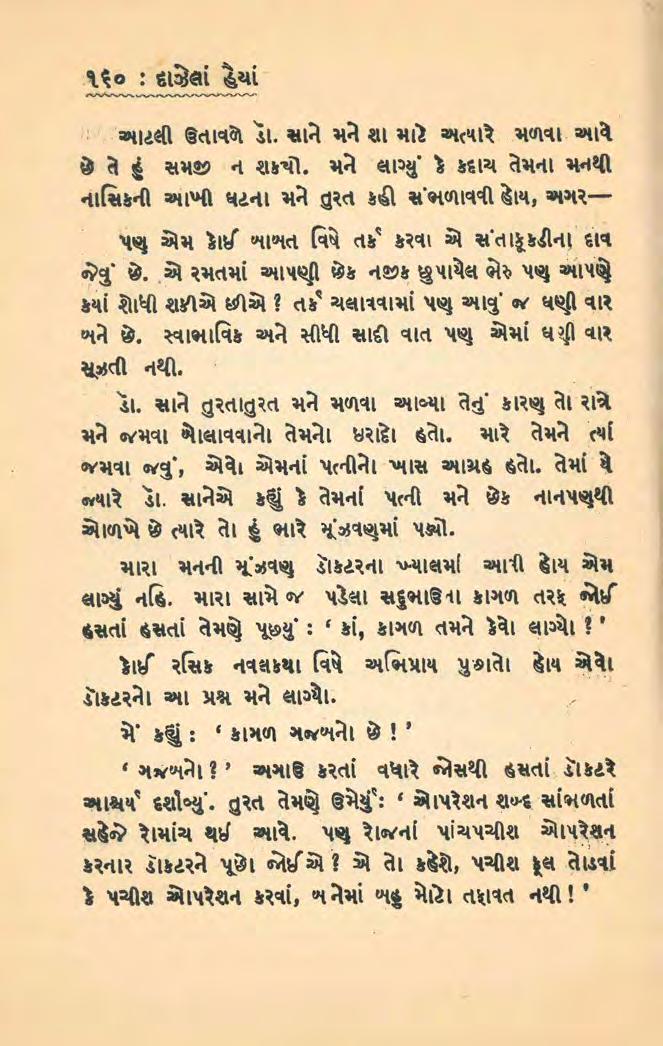 ૧૬૦ : દાઝેલાં હૈયાં
આટલી ઉતાવળે ડૉ. સાને મને શા માટે અત્યારે મળવા આવે
છે તે હું સમજી ન શક્યો. મને લાગ્યું કે કદાચ તેમના મનથી
નાસિકની આખી ઘટના મને તુરત કહી સંભળાવવી હોય, અગર—
પણ એમ કોઈ બાબત વિષે તર્ક કરવા એ સંતાકૂકડીના દાવ
જેવું છે. એ રમતમાં આપણી છેક નજીક છુપાયેલ ભેરુ પણ આપણે
કયાં શોધી શકીએ છીએ ? તર્ક ચલાવવામાં પણ આવું જ ઘણી વાર
બને છે. સ્વાભાવિક અને સીધી સાદી વાત પણ એમાં ઘણી વાર
સૂઝતી નથી.
ડૉ. સાને તુરતાતુરત મને મળવા આવ્યા તેનું કારણ તો રાત્રે
મને જમવા બોલાવવાનો તેમનો ઇરાદો હતો. મારે તેમને ત્યાં
જમવા જવું, એવો એમનાં પત્નીનો ખાસ આગ્રહ હતો. તેમાં યે
જ્યારે ડૉ. સાનેએ કહ્યું કે તેમનાં પત્ની મને છેક નાનપણથી
ઓળખે છે ત્યારે તો હું ભારે મૂંઝવણમાં પડ્યો.
મારા મનની મૂંઝવણ ડૉકટરના ખ્યાલમાં આવી હોય એમ
લાગ્યું નહિ. મારા સામે જ પડેલા સદુભાઉના કાગળ તરફ જોઈ
હસતાં હસતાં તેમણે પૂછ્યું : ‘ કાં, કાગળ તમને કેવો લાગ્યો ? ’
કોઈ રસિક નવલકથા વિષે અભિપ્રાય પુછાતો હોય એવો
ડૉકટરનો આ પ્રશ્ન મને લાગ્યો.
મેં કહ્યું : ‘ કાગળ ગજબનો છે ! ’
‘ ગજબનો ? ’ અગાઉ કરતાં વધારે જોસથી હસતાં ડૉકટરે
આશ્ચર્ય દર્શાવ્યું. તુરત તેમણે ઉમેર્યું : ‘ ઓપરેશન શબ્દ સાંભળતાં
સહેજે રોમાંચ થઈ આવે. પણ રોજનાં પાંચપચીશ ઓપરેશન
કરનાર ડૉકટરને પૂછો જોઈએ ? એ તો કહેશે, પચીશ ફૂલ તોડવાં
કે પચીશ ઓપરેશન કરવાં, બંનેમાં બહુ મોટો તફાવત નથી ! ’